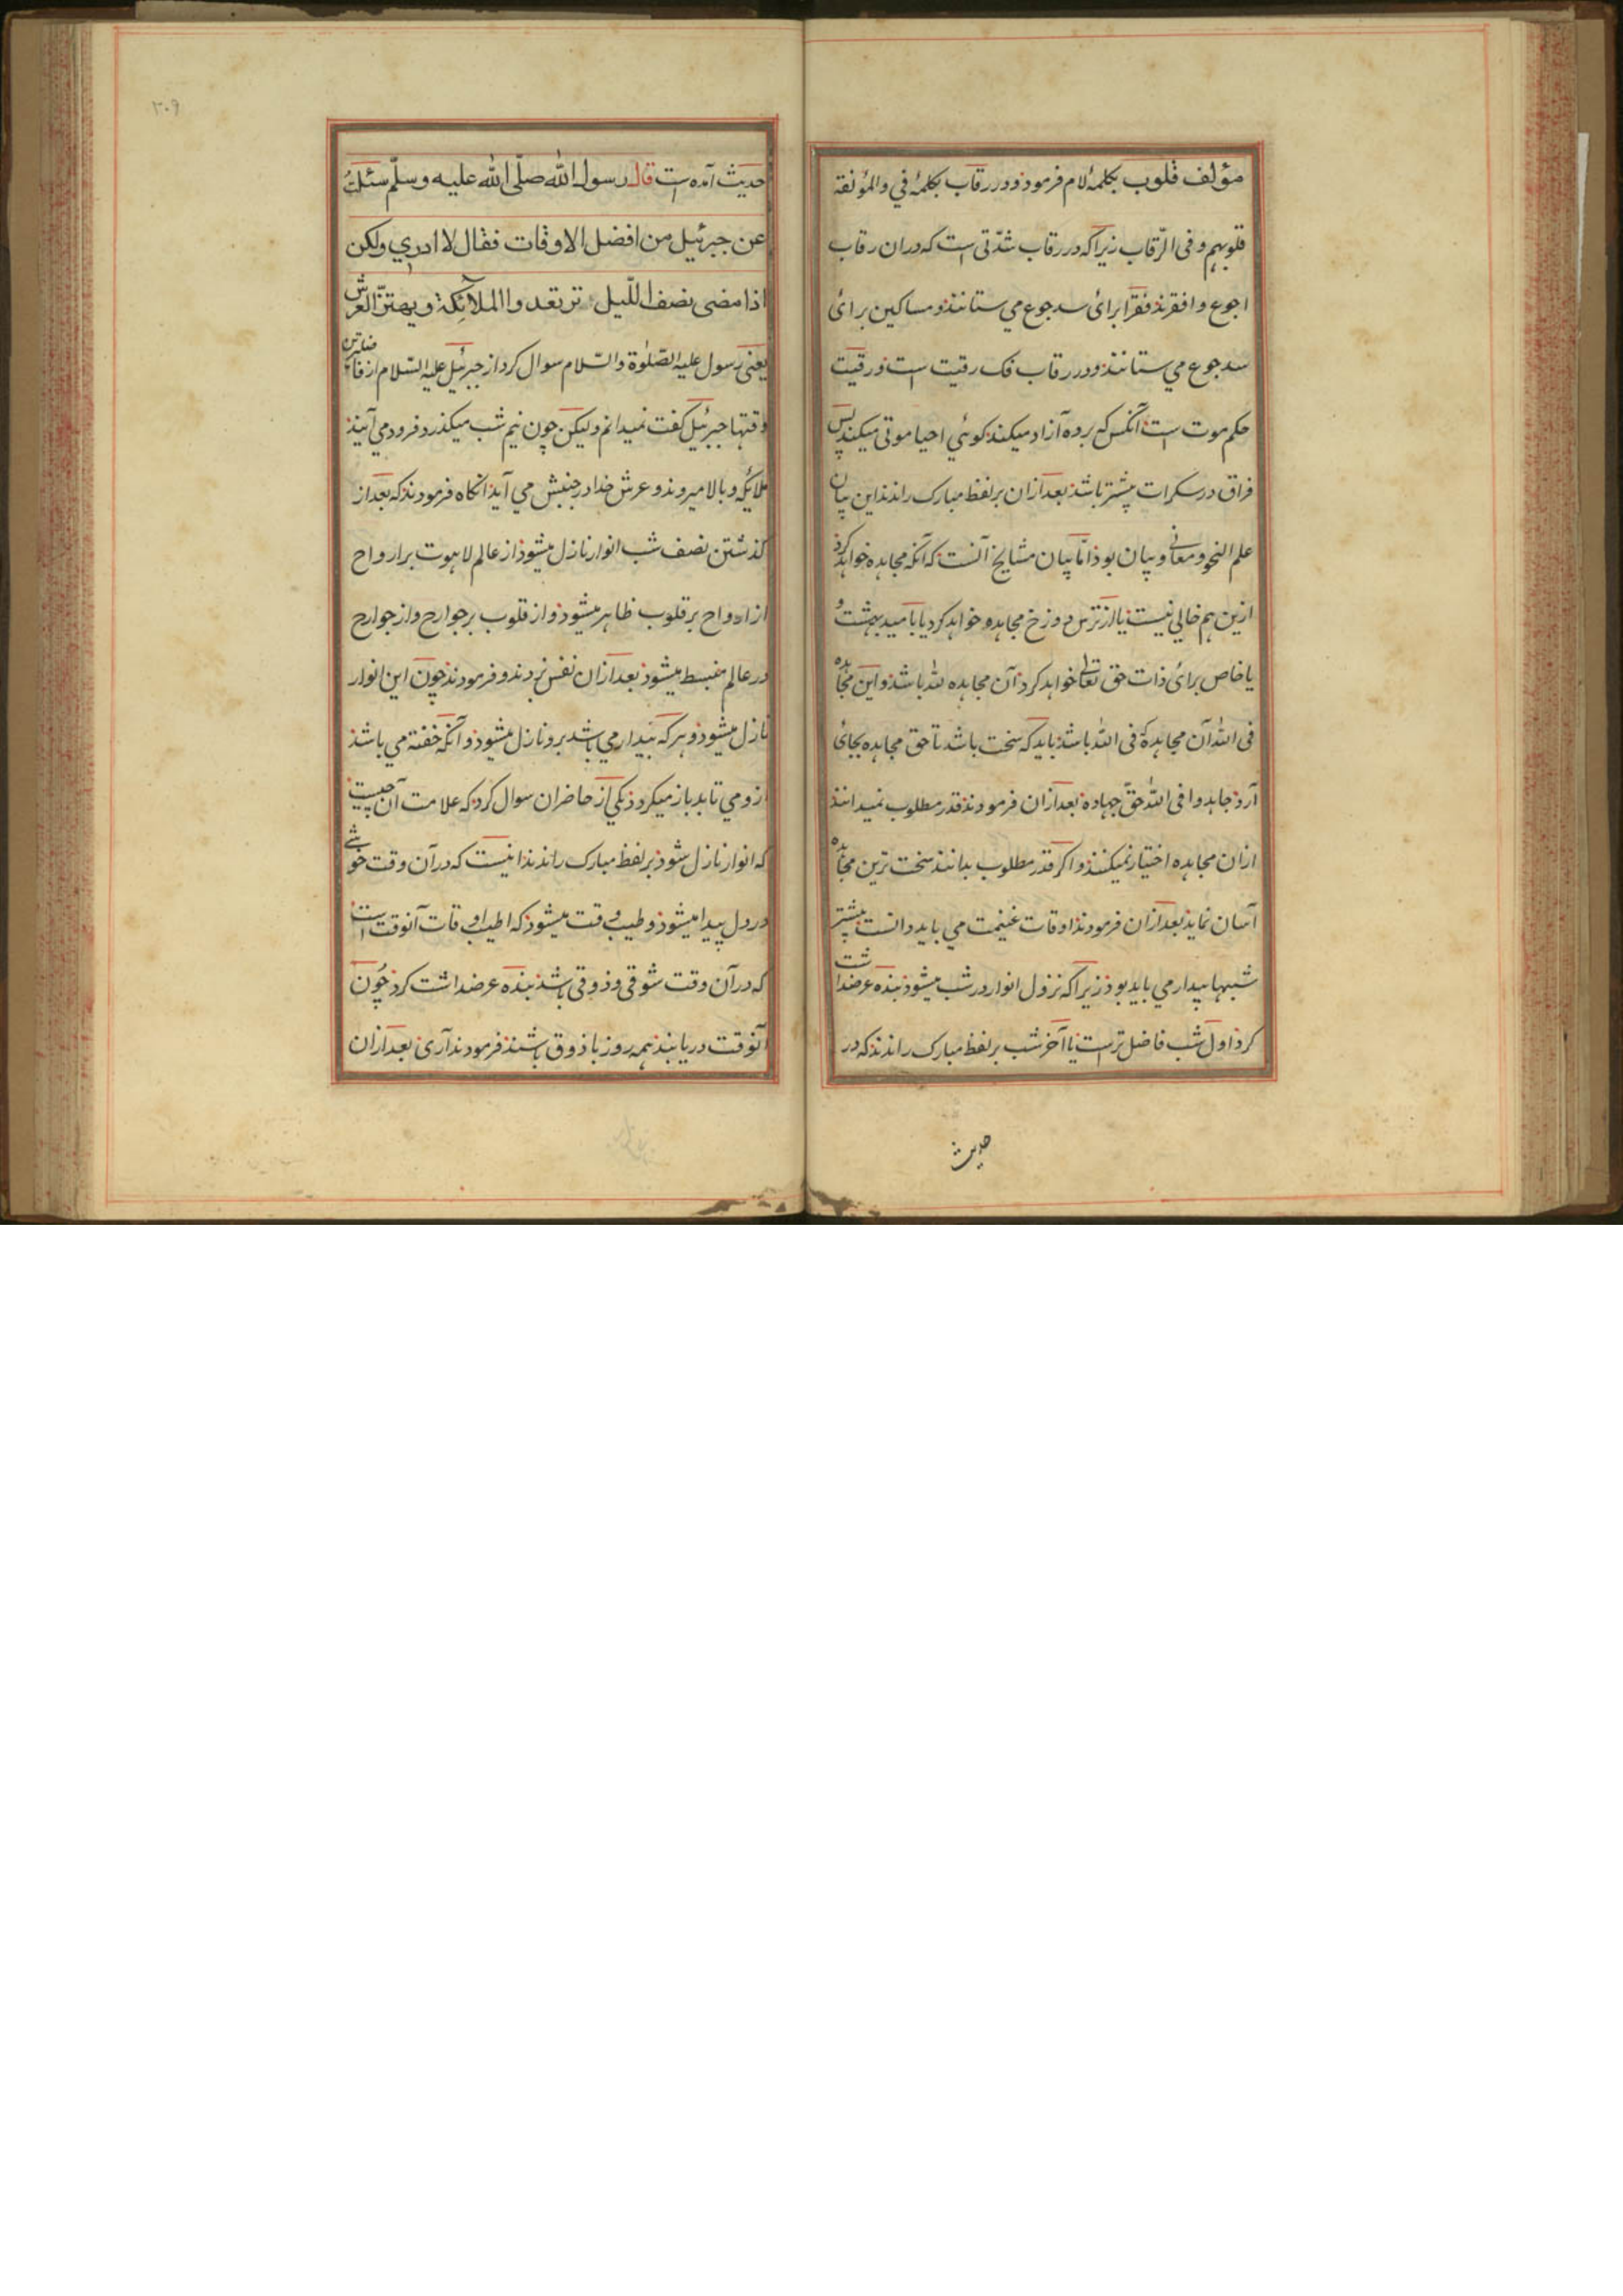 مؤلف قلوب بکلمهٔ لام فرمود و در رقاب بکلمهٔ في والمؤلفة
قلوبهم و فی الرّقاب زیرا که در رقاب شدّتی است که در ان رقاب
اجوع و افقرند فقرا برائ سد جوع مي ستانند و مساکین برائ
سد جوع مي ستانند و در رقاب فک رقیت است و رقیت
حکم موت است آنکس که برده آزاد میکند کوئي احیا موتی میکند پس
فراق در سکرات بیشتر باشد بعد ازان بر لفظ مبارک راندند این بیان
علم النحو و معانی و بیان بود امّا بیان مشایخ آنست که آنکه مجاهده خواهد کرد
ازین هم خالی نیست یا از ترس دوزخ مجاهده خواهد کرد یا بامید بهشت و
یا خاص برائ ذات حق تعالی خواهد کرد آن مجاهده لله باشد و این مجاهده
فی الله آن مجاهدة فی الله باشد باید که سخت باشد تا حق مجاهده بجائ
آرد جاهدوا فی الله حقّ جهاده بعد ازان فرمودند قدر مطلوب نمیدانند
ازان مجاهده اختیار نمیکنند و اکر قدر مطلوب بدانند سخت ترین مجاهده
آسان نماید بعد ازان فرمودند اوقات غنیمت مي باید دانست بیشتر
شبها بیدار مي باید بود زیرا که نزول انوار در شب میشود بنده عرضداشت
کرد اول شب فاضل ترست یا آخر شب بر لفظ مبارک راندند که در
حدیث
۲۰۹
حدیث آمده است قال رسول الله صلّی الله علیه وسلّم سئلتُ
عن جبرئیل من افضل الاوقات فقال لا ادري ولکن
اذا مضی نصف اللّیل الملآئکة و یهتزّ العرش
یعنی رسول علیه الصّلوٰة والسّلام سوال کرد از جبرئیل علیه السّلام از فاضلترین
وقتها جبرئیل کفت نمیدانم ولیکن چون نیم شب میکذرد فرود مي آیند
ملائکه و بالا میروند و عرش خدا در جنبش مي آید انکاه فرمودند که بعد از
کذشتن نصف شب انوار نازل میشود از عالم لاهوت بر ارواح
از ارواح بر قلوب ظاهر میشود و از قلوب بر جوارح و از جوارح
در عالم منبسط میشود بعد ازان نفس زدند و فرمودند چون این انوار
نازل میشود و هر که بیدار مي باشد برو نازل میشود و آنکه خفته مي باشد
ازو مي تابد باز میکردد یکي از حاضران سوال کرد که علامت آن چیست
که انوار نازل شود بر لفظ مبارک راندند انیست که در آن وقت خوشي
در دل پیدا میشود و طیب وقت میشود که اطیب اوقات آنوقت است
که در آن وقت شوقی و ذوقی باشد بنده عرضداشت کرد چُون
آنوقت دریابند همه روز با ذوق باشند فرمودند آری بعد ازان